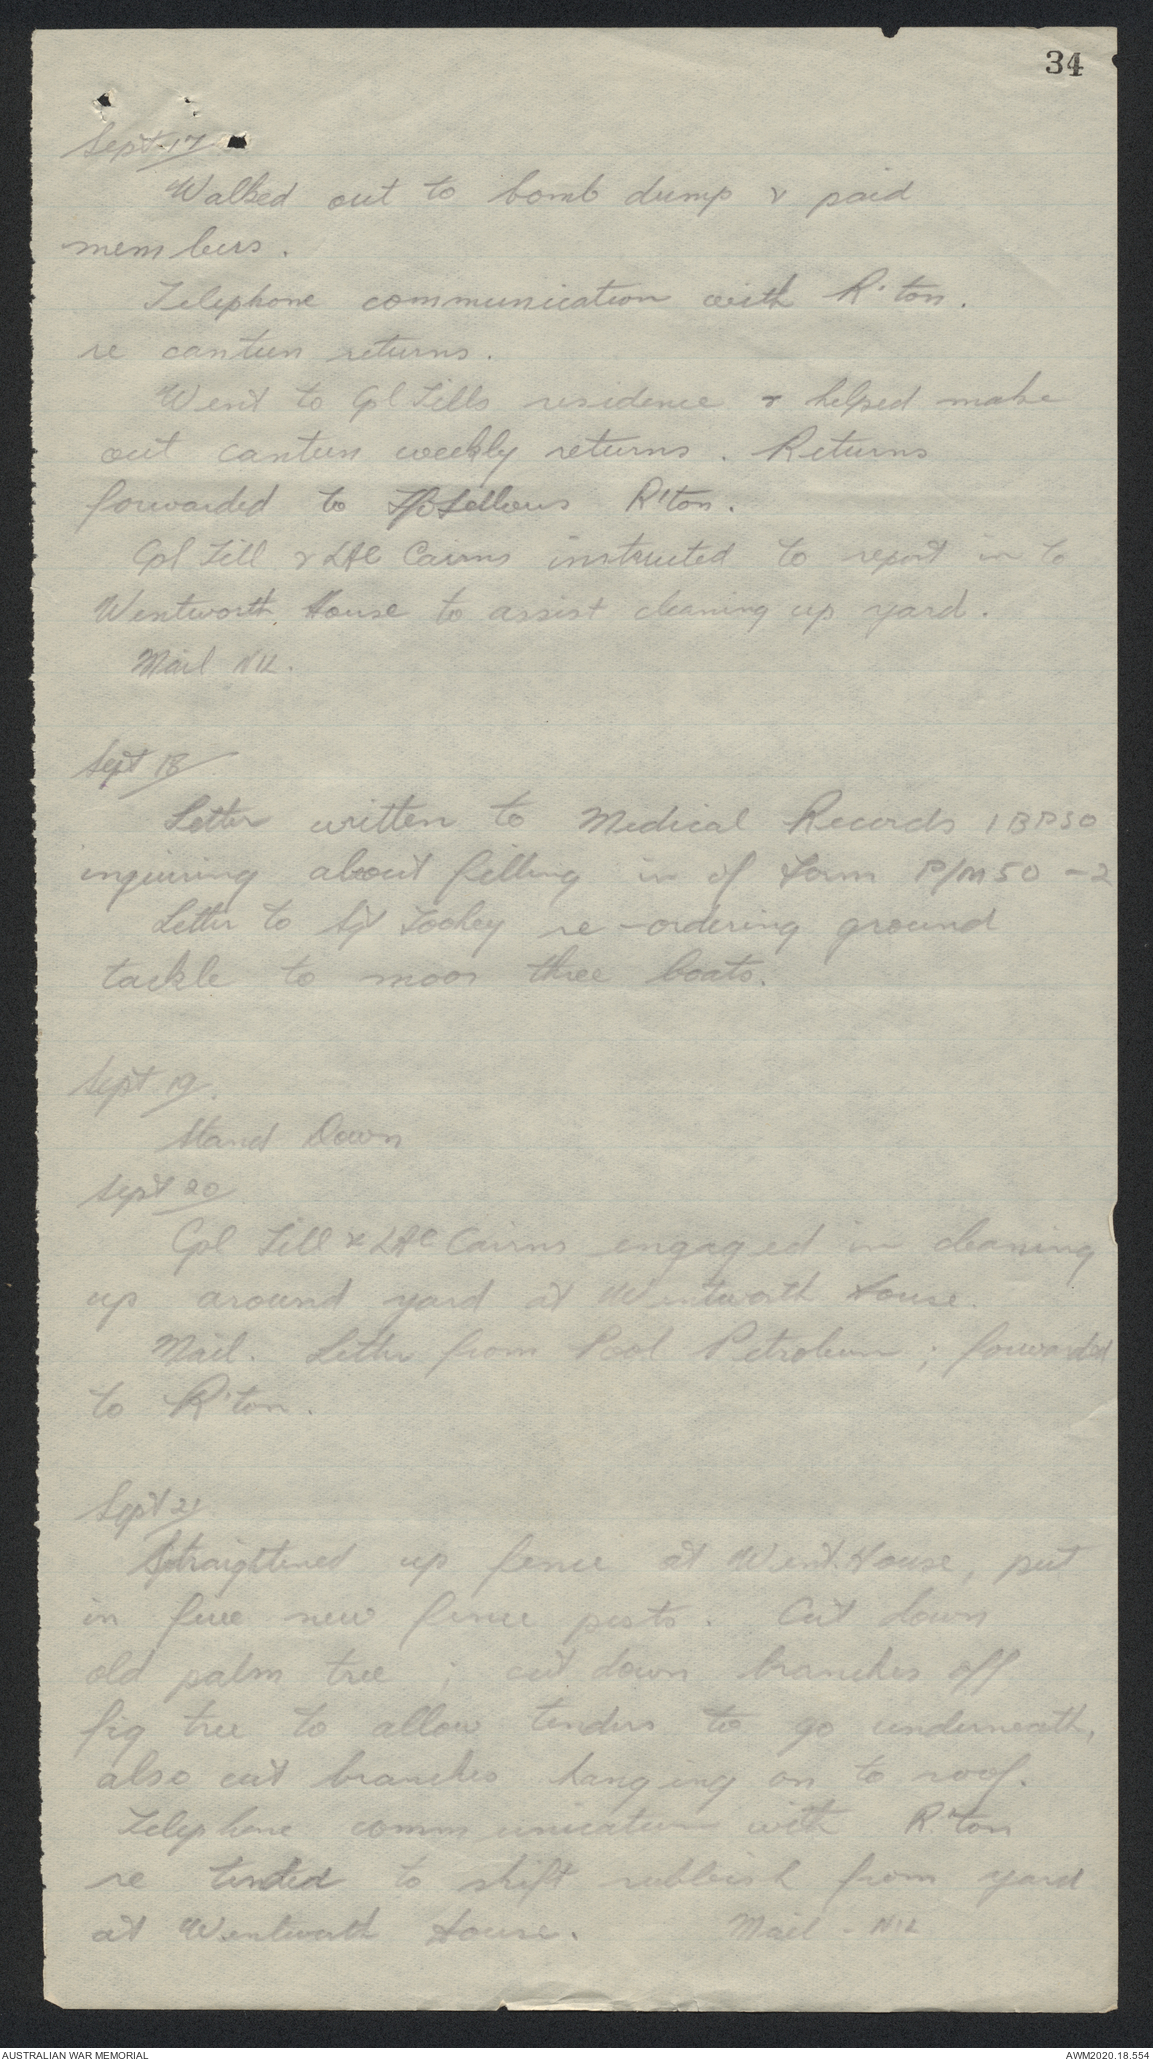 34
Sept 17
Walked out to bomb dump & paid
members.
Telephone communication with R'ton.
re canteen returns.
Went to Cpl Tills residence & helped make
out canteen weekly returns. Returns
forwarded to R'ton.
Cpl Till & LAC Cairns instructed to report in to
Wentworth House to assist cleaning up yard.
Mail NIL.
Sept 18
Letter written to Medical Records 1BPSO
inquiring about filling in of form P/M50-2
Letter to Sgt Toohey re-ordering ground
tackle to moor three boats.
Sept 19.
Stand Down
Sept 20
Cpl Till & LAC Cairns engaged in cleaning
up around yard at Wentworth House.
Mail. Letter from Pool Petroleum; forwarded
to R'ton.
Sept 21
Straightened up fence at Went. House, put
in five new fence posts. Cut down
old palm tree; cut down branches off
fig tree to allow tenders to go underneath,
also cut branches hanging on to roof.
Telephone communication with R'ton
re to shift rubbish from yard
at Wentworth House. Mail - NIL
AUSTRALIAN WAR MEMORIAL
AWM2020.18.554